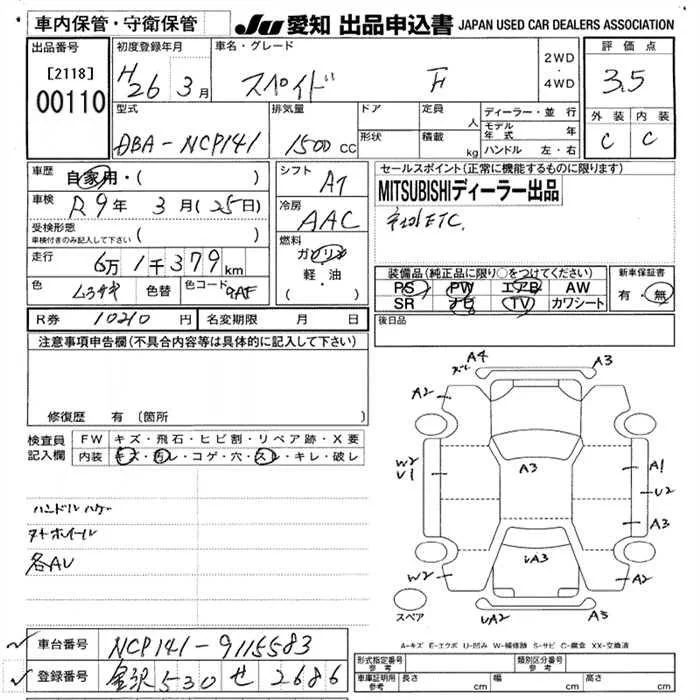 車内保管・守衛保管
JU 愛知 出品申込書 JAPAN USED CAR DEALERS ASSOCIATION
出品番号
[2118]
00110
初度登録年月
H26 3月
車名・グレード
スペイド F
2WD
・
4WD
評価点
3.5
外装 内装
C C
型式
DBA-NCP141
排気量
1500 CC
ドア
形状
定員
人
積載
kg
ディーラー・並行
モデル年式 年
ハンドル 左・右
車歴
自家用・( )
車検
R9年 3月(25日)
受検形態
車検付きのみ記入して下さい ( )
走行
6万1千379km
色
ムラサキ
色替
色コード
9AF
シフト
AT
冷房
AAC
燃料
ガソリン
軽・油
セールスポイント(正常に機能するものに限ります)
MITSUBISHIディーラー出品
ETC.
装備品(純正品に限り○をつけてください)
PS PW エアB AW
SR ナビ TV カワシート
新車保証書
有・無
R券 10210 円
名変期限 月 日
後日品
注意事項申告欄(不具合内容等は具体的に記入して下さい)
修復歴 有 (箇所 )
検査員
記入欄
FW キズ・飛石・ヒビ割・リペア跡・X要
内装 キズ・汚レ・コゲ・穴・スレ・キレ・破レ
ハンドルハゲ
ヌトホイール
各AU
A4 A3
ズレ
A2
A3
W2
U1
A1
U2
A3
W2
UA3
A2
UA2 A3
スペア
A-キズ E-エクボ U-凹み W-補修跡 S-サビ C-腐食 XX-交換済
車台番号
NCP141-9115583
登録番号
金沢 530 せ 2686
形式指定番号
参考
類別区分番号
参考
車庫証明用
参考
長さ cm
幅 cm
高さ cm